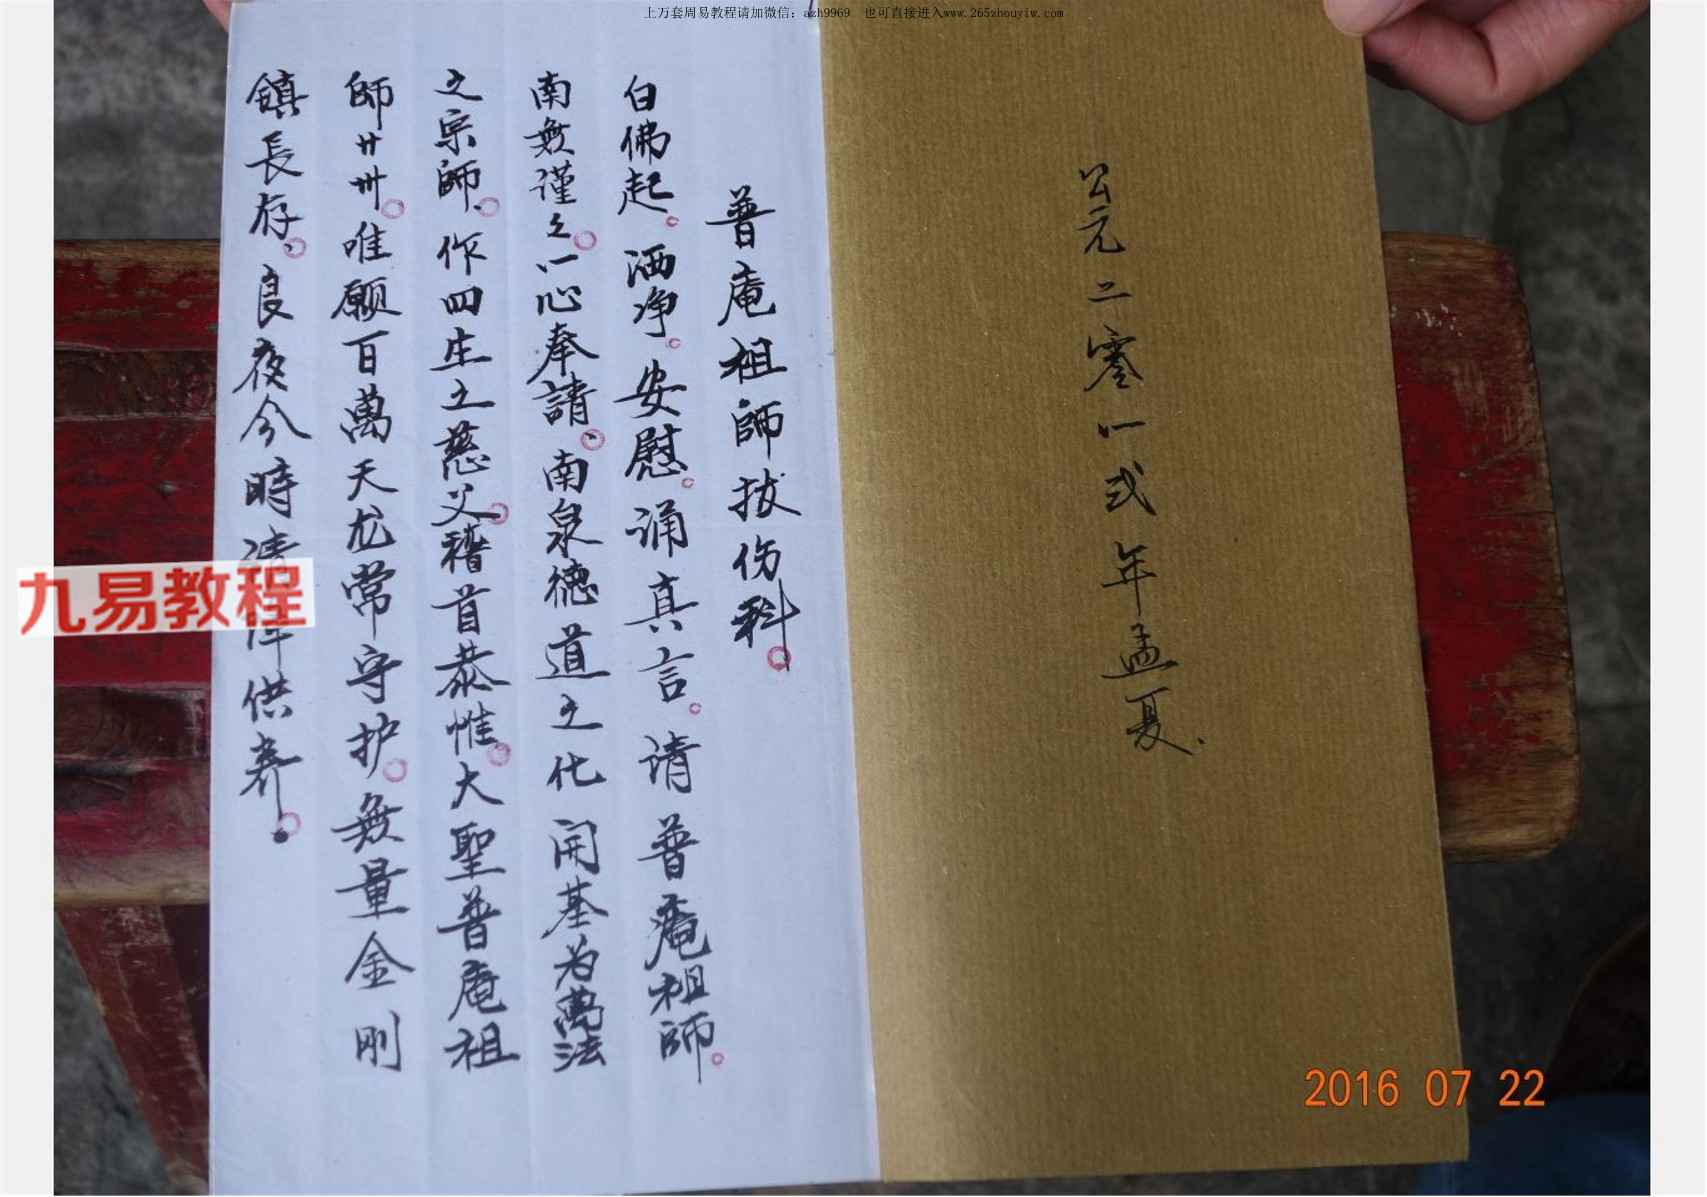 上万套周易教程请加微信：azh9969 也可直接进入www.265zhouyiw.com
公元二零一弍年孟夏.
普庵祖師拔伤科。
白佛起。洒净。安慰。诵真言。请普庵祖師。
南無谨々。一心奉請、南泉德道之化開基为萬法
之宗師、作四生之慈父。稽首恭惟。大聖普庵祖
師廿卅。唯願百萬天尤常守护。無量金刚
鎮長存、良夜今時清净供养。
九易教程
2016 07 22